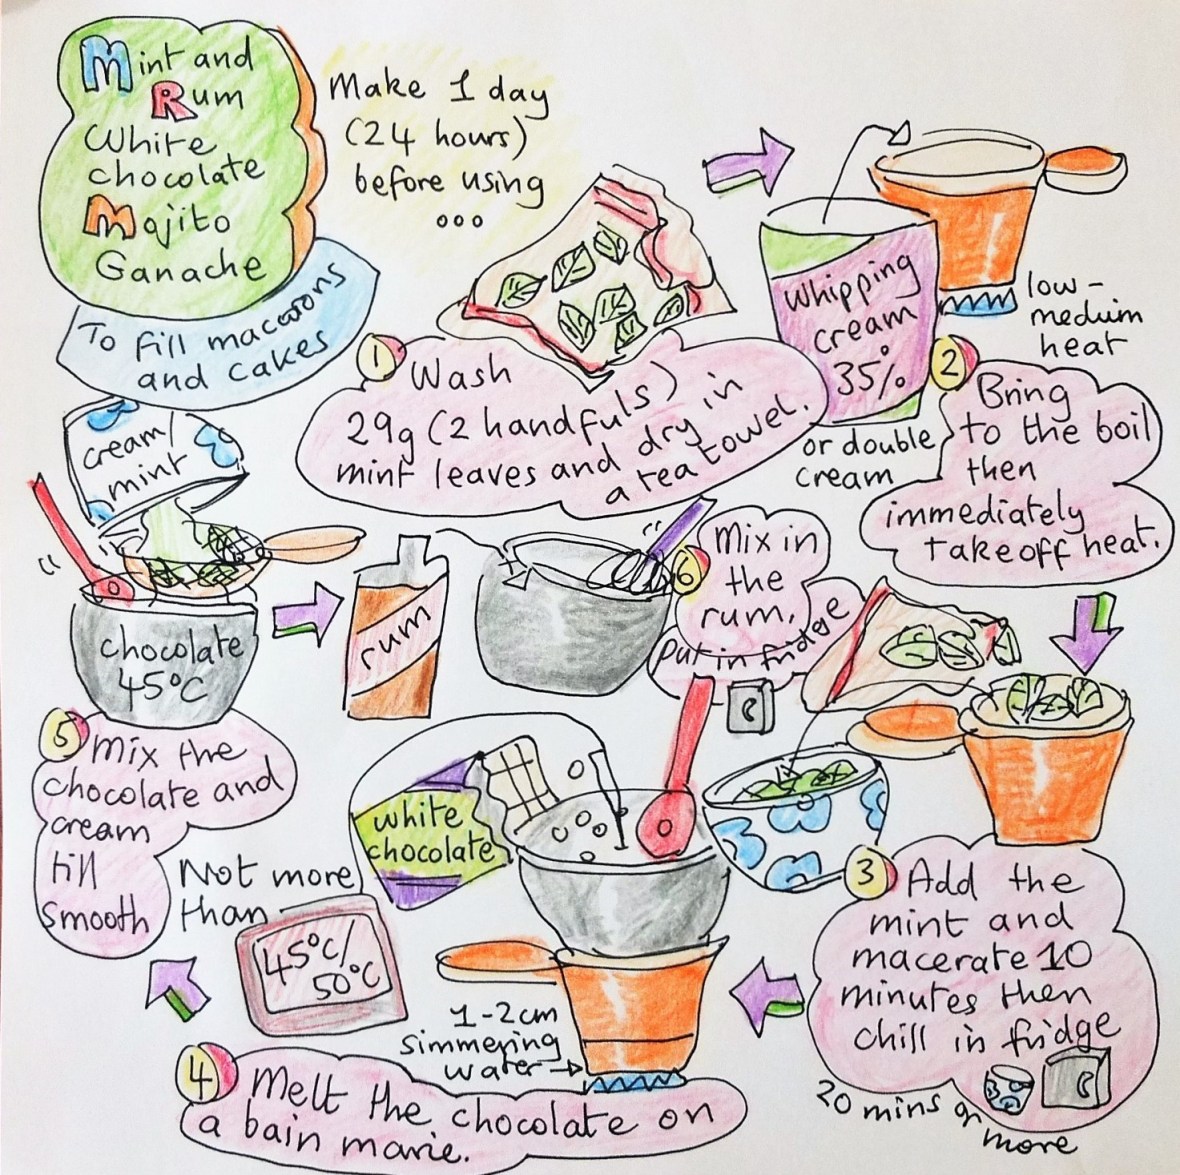 Mint and
Rum
White
chocolate
Mojito
Ganache
To fill macarons
and cakes
Make 1 day
(24 hours)
before using
...
1 Wash
29g (2 handfuls)
mint leaves and dry in
a tea towel.
Whipping
cream
35%
or double
cream
low-
medium
heat
2 Bring
to the boil
then
immediately
take off heat.
3 Add the
mint and
macerate 10
minutes then
chill in fridge
20 mins or
more
white
chocolate
1-2cm
simmering
water
Not more
than
45°C/
50°C
4 Melt the chocolate on
a bain marie.
cream/
mint
chocolate
45°C
5 Mix the
chocolate and
cream
till
smooth
rum
6 Mix in
the
rum,
put in fridge